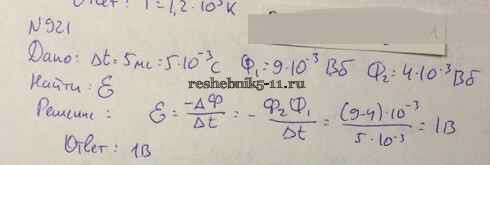 Ответ: T=1,2·10³K
N921
Дано: Δt=5мс=5·10⁻³с Ф₁=9·10⁻³ Вб Ф₂=4·10⁻³ Вб
Найти: ℰ
reshebnik5-11.ru
Решение: ℰ = -ΔФ/Δt = - Ф₂Ф₁/Δt = (9-4)·10⁻³/5·10⁻³ = 1В
Ответ: 1В